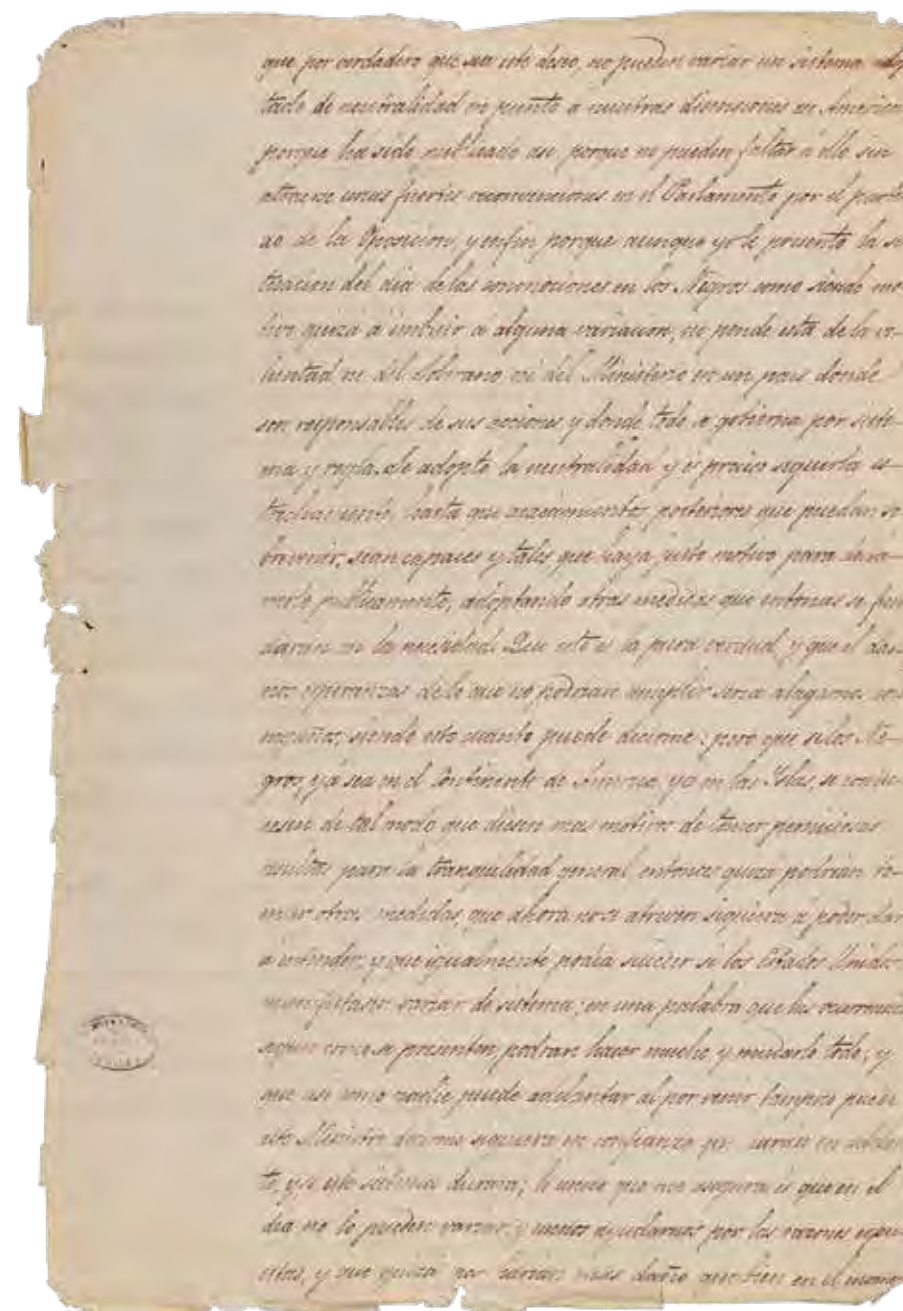 que por verdadero que sea este deseo, no pueden variar un sistema adop
tado de neutralidad en punto a nuestras disensiones en America
porque ha sido publicado asi porque no pueden faltar á ello sin
atraerse unas fuertes reconvenciones en el Parlamento por el parti
do de la Oposicion, y enfin porque aunque yo le presento la si
tuacion del dia de las conmociones en los Negros como siendo mo
tivo quizá á influir á alguna variacion, no pende esta de la vo-
luntad ni del Soberano ni del Ministerio en un pais donde
son responsables de sus acciones y donde todo se gobierna por siste-
ma y regla. Se adoptó la neutralidad y es preciso seguirla es-
trechamente hasta que acaecimientos posteriores que puedan so
brevenir, sean capaces y tales que haya justo motivo para
publicamente, adoptando otras medidas que entonces se fun
darán en la necesidad. Que esto es la pura verdad, y que el dar
nos esperanzas de lo que no podrian cumplir seria alagarnos con
engaños, siendo esto cuanto puede decirme: pero que si los Ne-
gros, yá sea en el Continente de America, ya en las Yslas, se condu-
jesen de tal modo que diesen mas motivos de temer perniciosas
resultas para la tranquilidad general entonces quizá podrian to-
mar otras medidas, que ahora no se atreven siquiera á poder dar
á entender, y que igualmente podia suceder si los Estados Unidos
manifestasen variar de sistema; en una palabra que las ocurrencias
segun como se presenten, podran hacer mucho y mudarlo todo; y
que asi como nadie puede adelantar al por venir tampoco puede
este Ministro decirme siquiera en confianza que harán en adelan
te, y si este sistema durara; lo unico que me asegura es que en el
dia no lo pueden variar, y menos ayudarnos por las razones espre
citas, y que quizá nos harian mas daño que bien en el